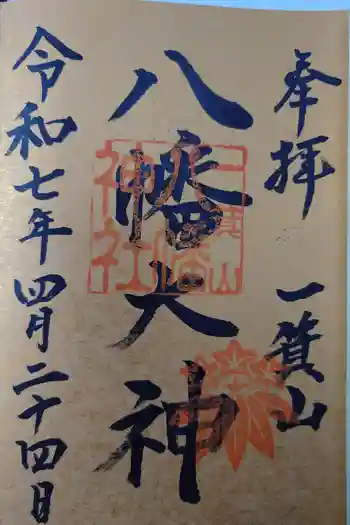 奉拝 一箕山
八幡大神
令和七年四月二十四日
一箕山
八幡
神社